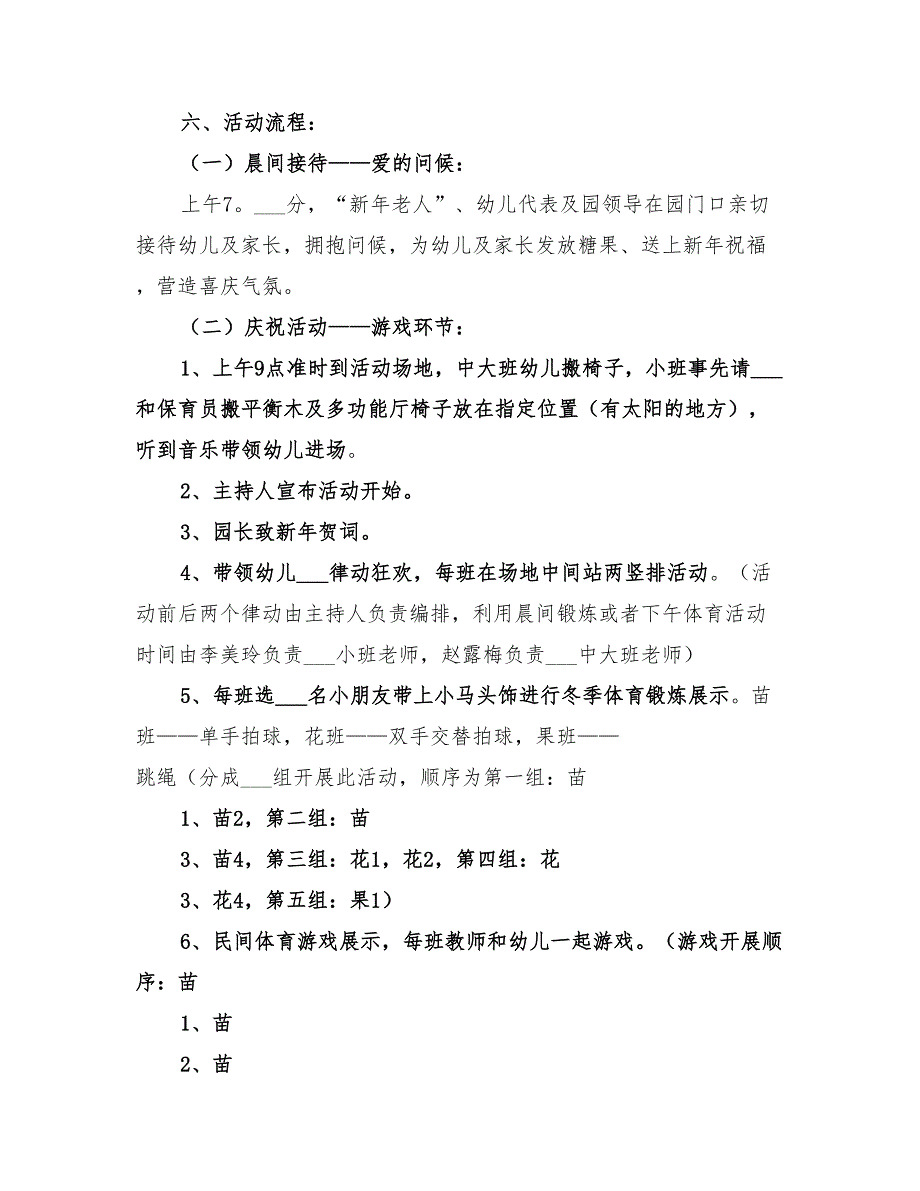 六、活动流程：
（一）晨间接待——爱的问候：
上午7。___分，“新年老人”、幼儿代表及园领导在园门口亲切
接待幼儿及家长，拥抱问候，为幼儿及家长发放糖果、送上新年祝福
，营造喜庆气氛。
（二）庆祝活动——游戏环节：
1、上午9点准时到活动场地，中大班幼儿搬椅子，小班事先请___
和保育员搬平衡木及多功能厅椅子放在指定位置（有太阳的地方），
听到音乐带领幼儿进场。
2、主持人宣布活动开始。
3、园长致新年贺词。
4、带领幼儿___律动狂欢，每班在场地中间站两竖排活动。（活
动前后两个律动由主持人负责编排，利用晨间锻炼或者下午体育活动
时间由李美玲负责___小班老师，赵露梅负责___中大班老师）
5、每班选___名小朋友带上小马头饰进行冬季体育锻炼展示。苗
班——单手拍球，花班——双手交替拍球，果班——
跳绳（分成___组开展此活动，顺序为第一组：苗
1、苗2，第二组：苗
3、苗4，第三组：花1，花2，第四组：花
3、花4，第五组：果1）
6、民间体育游戏展示，每班教师和幼儿一起游戏。（游戏开展顺
序：苗
1、苗
2、苗